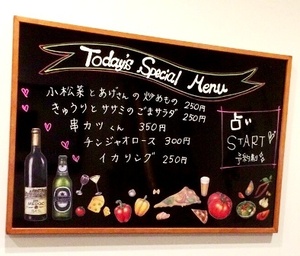 Today's Special Menu
小松菜とあげさんの炒めもの 250円
きゅうりとササミのごまサラダ 250円
串カツくん 350円
チンジャオロース 300円
イカリング 250円
占い
START
予約制